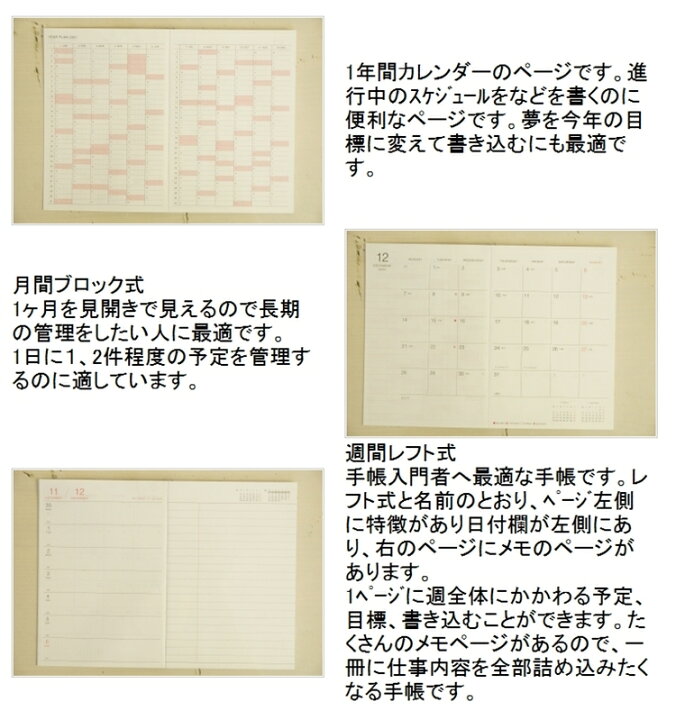 1年間カレンダーのページです。進
行中のｽｹｼﾞｭｰﾙをなどを書くのに
便利なページです。夢を今年の目
標に変えて書き込むにも最適で
す。
月間ブロック式
1ヶ月を見開きで見えるので長期
の管理をしたい人に最適です。
1日に1、2件程度の予定を管理す
るのに適しています。
12
週間レフト式
手帳入門者へ最適な手帳です。レ
フト式と名前のとおり、ﾍﾟｰｼﾞ左側
に特徴があり日付欄が左側にあ
り、右のページにメモのページが
あります。
1ﾍﾟｰｼﾞに週全体にかかわる予定、
目標、書き込むことができます。た
くさんのメモページがあるので、一
冊に仕事内容を全部詰め込みたく
なる手帳です。
11 / 12